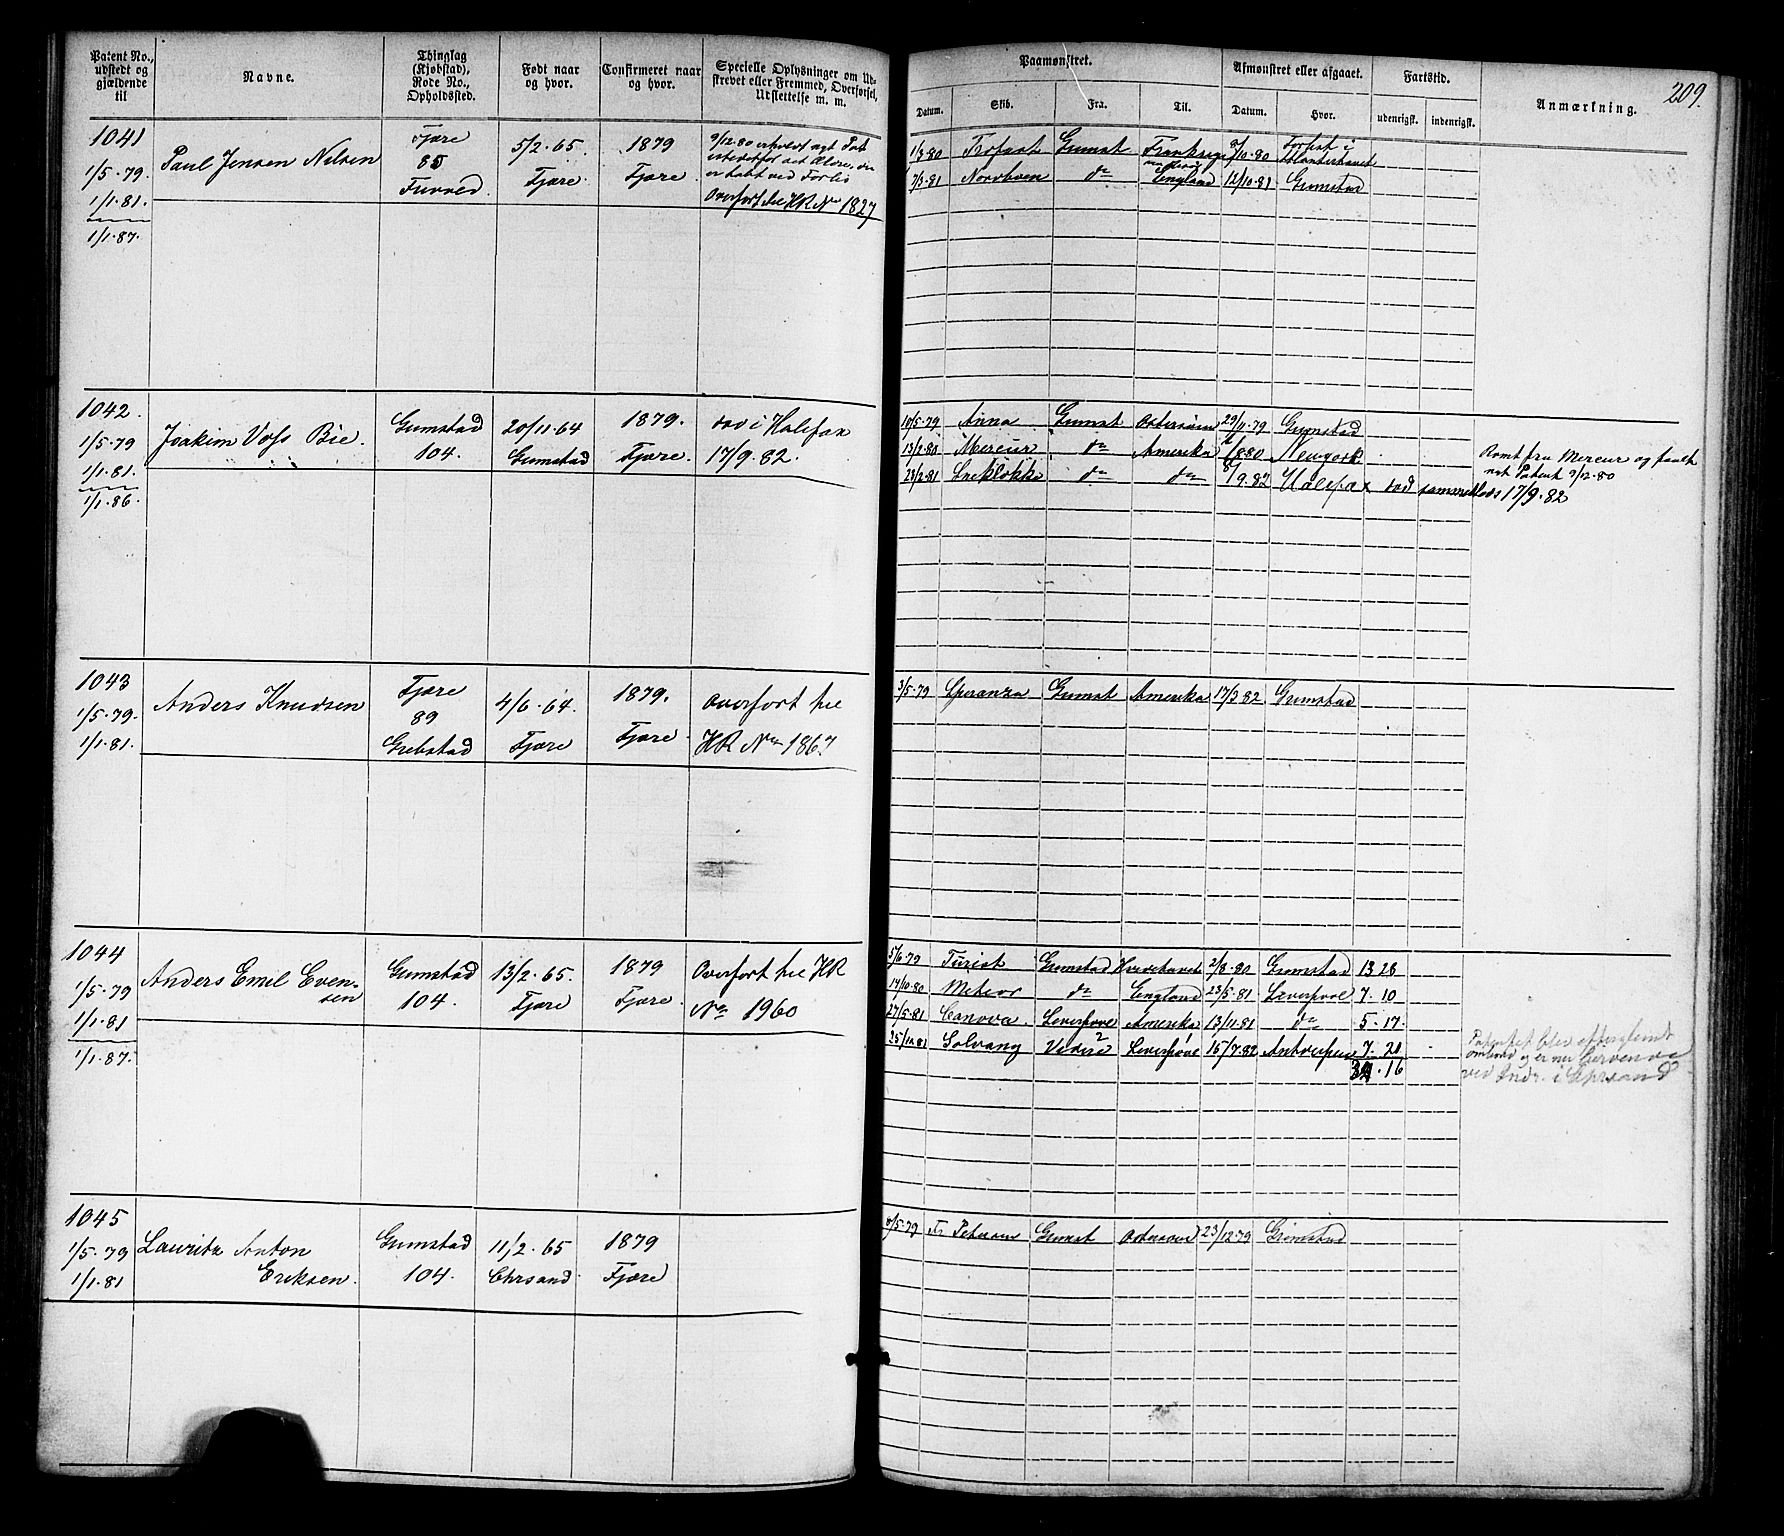 Patent No., udstedt og gjældende til
Navne.
Thinglag (Kjøbstad), Rode No., Opholdssted.
Født naar og hvor.
Confirmeret naar og hvor.
Specielle Oplysninger om Udskrevet eller Fremmed, Overførsel, Udslettelse m. m.
Paamønstret.
Datum.
Skib.
Fra.
Til.
Afmønstret eller afgaaet.
Datum.
Hvor.
Fartstid.
udenrigsk.
indenrigsk.
Anmærkning.
209.
1041
1/5-79.
1/1.81.
1/1.87.
Paul Jensen Nilsen
Fjære
85
5/2.65.
Fjære.
1879
Fjære.
9/12.80 erholdt nyt Pat
istedetfor det Ældre, der
er tabt ved Forlis
Overført til HR No 1827
1/3 80 Trofast Grimst Frankrige 8/10.80 Forlist i
Atlanterhavet
7/3.81 Nordboen do England 12/10.81 Grimstad
1042.
1/5.79
1/1.81.
1/1.86.
Joakim Voss Bie.
Grimstad
104.
20/11.64
Grimstad
1879.
Fjære.
død i Halifax
17/9.82.
10/5.79 Anna Grimst Østersøen 29/11.79 Grimstad
13/2.80 Mercur do Amerika /8.80 Newyork
28/2.81 do do 8/9.82 Halifax død sammesteds 17/9.82
Rømt fra Mercur og faaet
nyt Patent 9/12.80
1043
1/5.79.
1/1.81.
Anders Knudsen
Fjære
89
Grebstad
4/6.64.
Fjære
1879.
Fjære.
Overført til
HR No 1867
3/5.79 Speranza Grimst Amerika 17/3 82 Grimstad
1044
1/5.79
1/1.81
1/1.87.
Anders Emil Even-
sen
Grimstad
104.
13/2.65.
Fjære
1879
Fjære.
Overført til HR
No 1960
5/6.79 Turist Grimstad Hvidehavet 2/8.80 Grimstad 13 28
14/10.80 Meteor do England 23/5.81 Liverpool 7.10
27/5.81 Canova. Liverpool Amerika 13/11.81 do 5.17.
25/12.81 Solvang Liverpool 15/7.82 Antverpen 7.21
34.16
Patentet blev efterglemt
ombord og er nu
ved Indr. i Chrsand
1045
1/5.79
1/1.81
Lauritz Anton
Eriksen.
Grimstad
104.
11/2.65
Chrsand.
1879
Fjære
8/5.79 Fr Petersen Grimst Østersøen 23/12.79 Grimstad